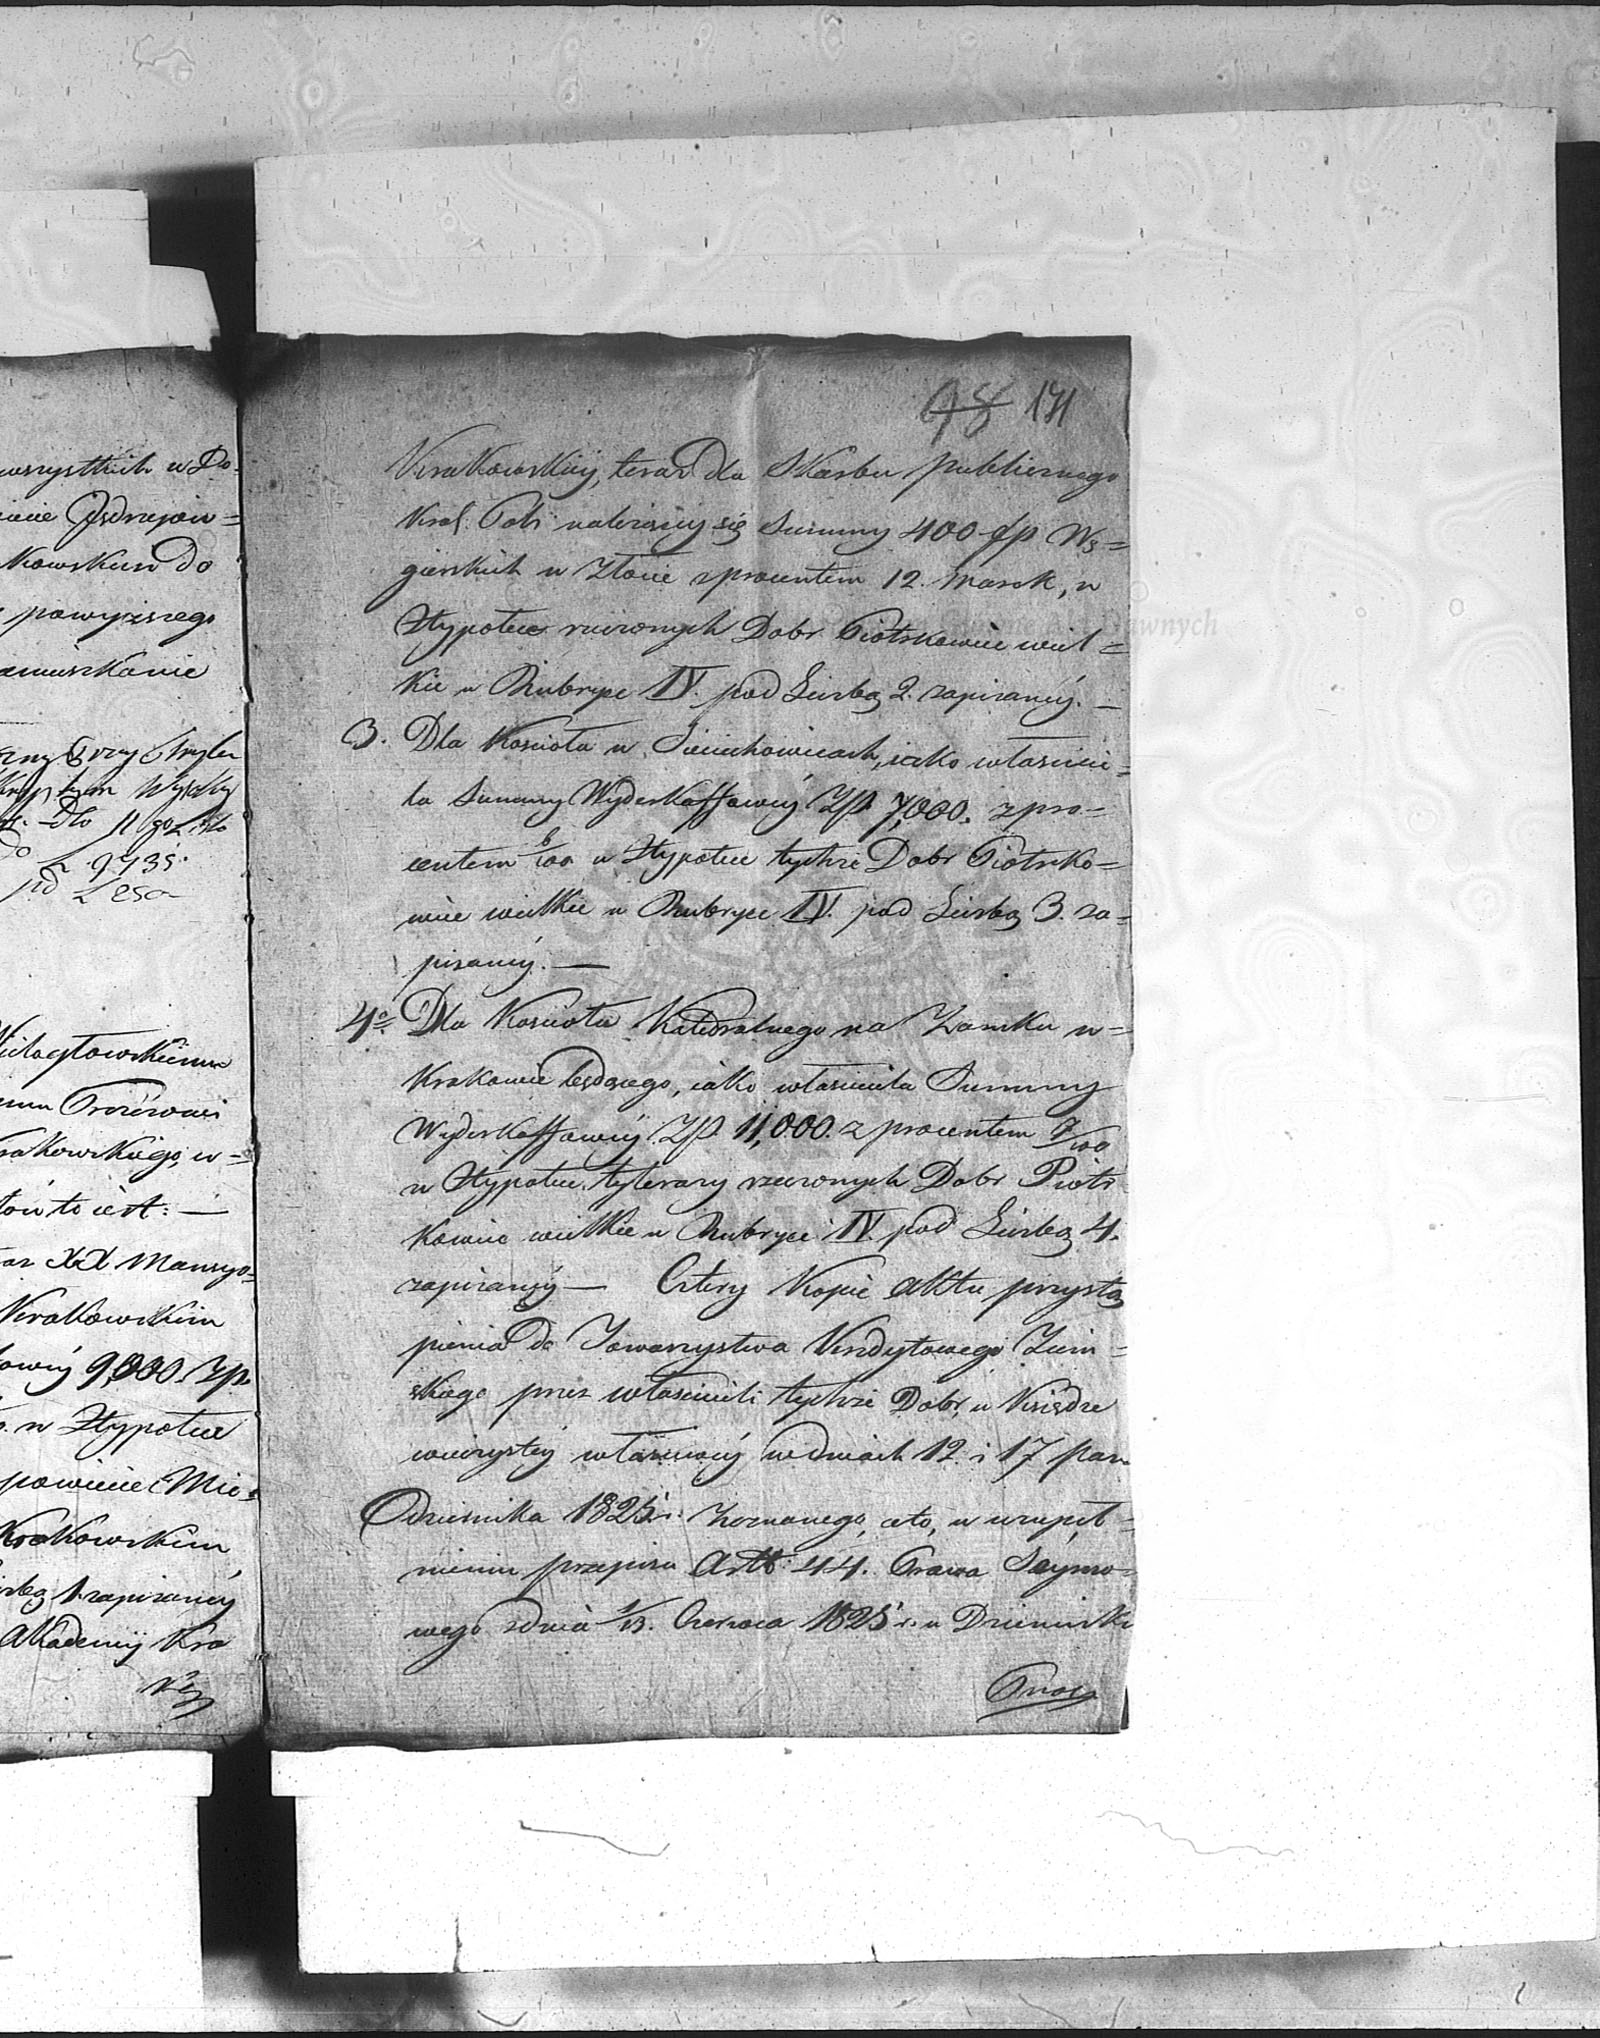 wszystkich w Do-
Jędrzejow=
kowskim Do
powyższego
zamieszkanie
9735.
Wielogłowskiemu
Krakowskiego, w=
to iest: —
XX Mansyo=
Krakowskim
9,000 Zp.
w Hypotece
powiecie Mie=
Krakowskim
zapisanéy
Akademij Kra
98 171
Krakowskiéy, teraz dla Skarbu publicznego
Król: Pols: należącéy się Summy 400 fp Wę=
gierskich w Złocie z procentem 12. Marck, w
Hypotece rzeczonych Dobr Piotrkowice wiel=
kie w Rubryce IV. pod Liczbą 2. zapisanéy. —
3. Dla Kościoła w Sieciechowicach, iako właścicie=
la Summy Wyderkaffowéy Zlp. 7,000. z pro=
centem 6/100 w Hypotece tychże Dobr Piotrko=
wice wielkie w Rubryce IV. pod Liczbą 3. za=
pisanéy. —
4o. Dla Kościoła Katedralnego na Zamku w=
Krakowie będącego, iako właściciela Summy
Wyderkaffowéy Zlp. 11,000. z procentem 7/100
w Hypotece tylerazy rzeczonych Dobr Piotr
kowice wielkie w Rubryce IV. pod Liczbą 4.
zapisanéy — Cztery Kopie Aktu przystą
pienia do Towarzystwa Kredytowego Ziem=
skiego przez właścicieli tychże Dobr, w Księdze
wieczystéy właściwéy w dniach 12. i 17 Paź
dziernika 1825. r. zeznanego, a to, w uzupeł=
nieniu przepisu Artt: 44. Prawa Séymo=
wego z dnia 1/13. Czerwca 1825 r. w Dzienniku
Praw